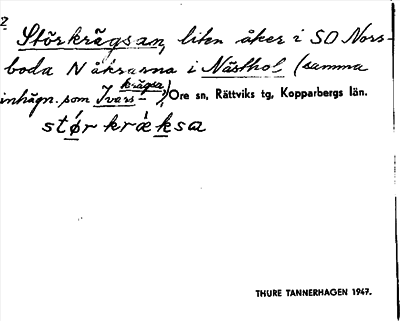 2
Störkrägsan, liten åker i SO Norr-
boda N åkrarna i Nästhol (samma
inhägn. som Ivars-krägsa), Ore sn, Rättviks tg, Kopparbergs län.
stǿr krǽksa
THURE TANNERHAGEN 1947.